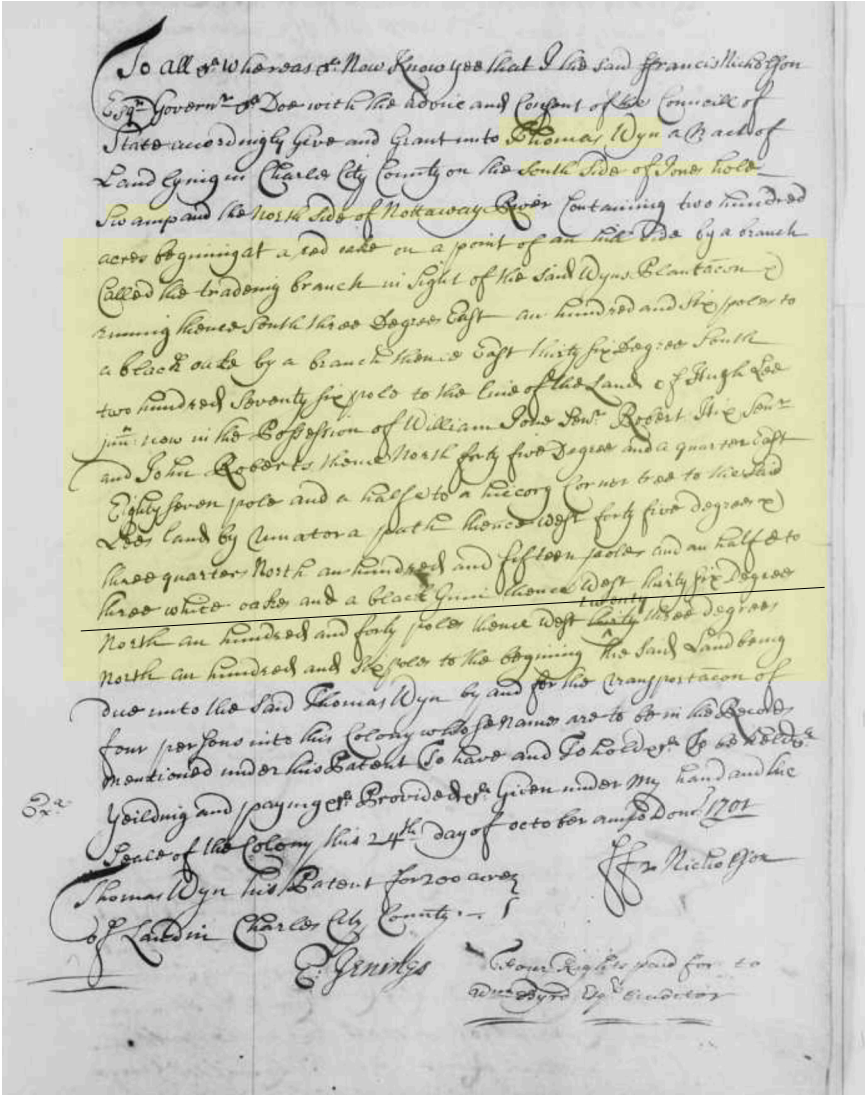 To all &ca Whereas &ca Now Know yee that I the said ffrancis Nicholson
Esqr Governr &ca Doe with the advice and Consent of the Councill of
State accordingly Give and Grant unto Thomas Wyn a tract of
Land lying in Charles City County on the South Side of Jones hole
Swamp and the North Side of Nottaway River Containing two hundred
acres begining at a red oake on a point of an hill Side by a branch
Called the tradeing branch in Sight of the Said Wyns Plantacon
running thence South three Degrees East an hundred and Six poles to
a black oake by a branch thence East thirty Six Degree South
two hundred Seventy Six pole to the line of the Land of Hugh Lee
junr now in the Possession of William Jone Senr Robert Hix Senr
and John Roberts thence North forty five Degree and a quarter East
Eighty Seven pole and a half to a hiccory Corner tree to the Said
Lees land by path thence West forty five degrees
three quarters North an hundred and fifteen poles and an half to
three white oakes and a black Gum thence West thirty Six Degree
North an hundred and forty poles thence West thirty twenty three degrees
North an hundred and Six poles to the begining the Said Land being
due unto the Said Thomas Wyn by and for the transportacon of
four persons into this Colony whose names are to be in the Records
mentioned under this Patent To have and To hold &ca To be held &ca
Yeilding and paying &ca Provided &ca Given under my hand and the
Exa
Seale of the Colony this 24th day of October Dom 1701
Thomas Wyn his Patent for 200 acres
ffr Nicholson
of Land in Charles City County
E Jenings
Four Rights paid for to
Wm Byrd Esqr Auditor